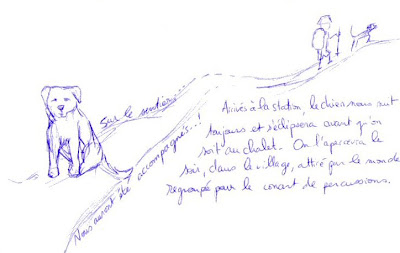 sur le sentier...
Nous aurons été accompagnés...!
Arrivés à la station le chien nous suit
toujours et s'éclipsera avant qu'on
soit au chalet. On l'apercevra le
soir, dans le village, attiré par le monde
regroupé pour le concert de percussions.